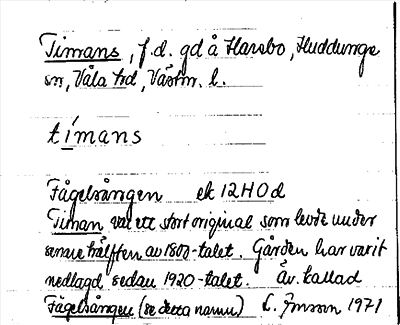 Timans, f.d. gd å Harsbo, Huddunge
sn, Våla hd, Västm. l.
tímans
Fågelsången ek 12H0d
Timan var ett stort original som levde under
senare hälften av 1800-talet. Gården har varit
nedlagd sedan 1920-talet. Äv. kallad
Fågelsången (se detta namn) L. Jonsson 1971